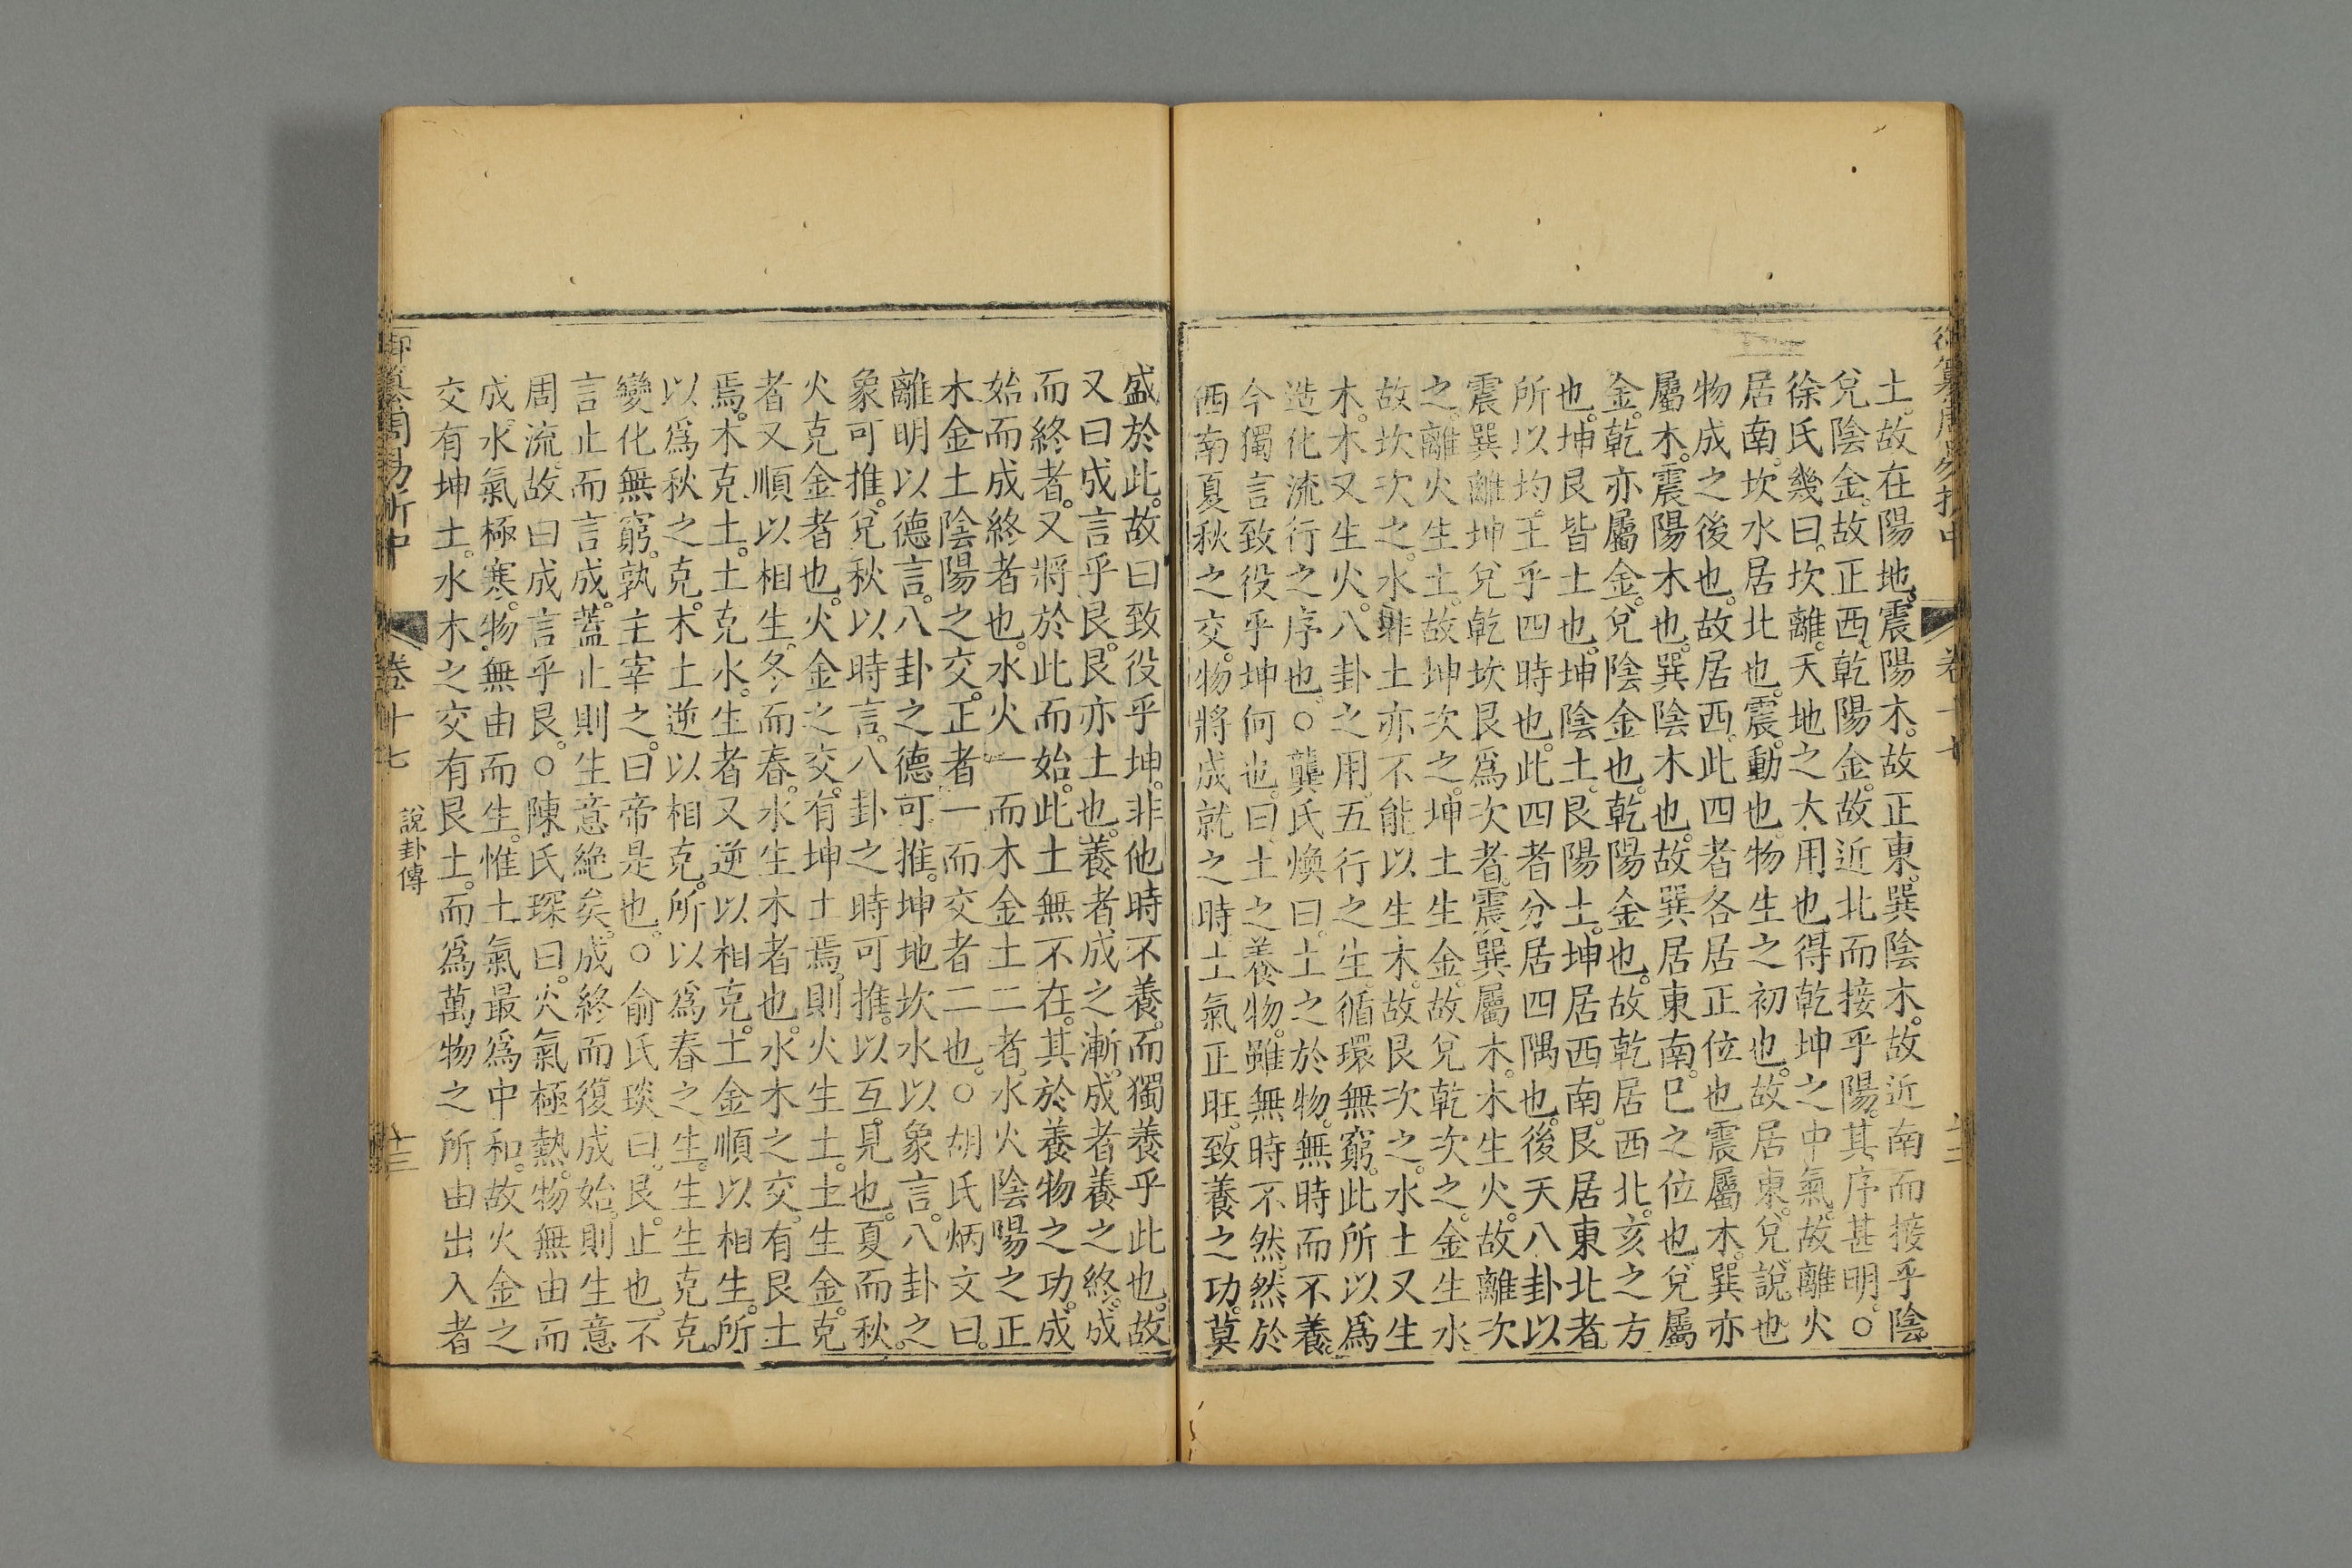 土。故在陽地。震陽木。故正東。巽陰木。故近南而接乎陰。
兌陰金。故正西。乾陽金。故近北而接乎陽。其序甚明。○
徐氏幾曰。坎離。天地之大用也。得乾坤之中氣。故離火
居南。坎水居北也。震。動也。物生之初也。故居東。兌。說也
物成之後也。故居西。此四者各居正位也。震屬木。巽亦
屬木。震陽木也。巽陰木也。故巽居東南。巳之位也。兌屬
金。乾亦屬金。兌陰金也。乾陽金也。故乾居西北。亥之方
也。坤艮皆土也。坤陰土。艮陽土。坤居西南。艮居東北者
所以均王乎四時也。此四者分居四隅也。後天八卦以
震巽離坤兌乾坎艮爲次者。震巽屬木。木生火。故離次
之。離火生土。故坤次之。坤土生金。故兌乾次之。金生水
故坎次之。水非土亦不能以生木。故艮次之。水土又生
木。木又生火。八卦之用。五行之生。循環無窮。此所以爲
造化流行之序也。○龔氏煥曰。土之於物。無時而不養。
今獨言致役乎坤何也。曰。土之養物。雖無時不然。然於
西南夏秋之交。物將成就之時。土氣正旺。致養之功。莫
盛於此。故曰致役乎坤。非他時不養。而獨養乎此也。故
又曰成言乎艮。艮亦土也。養者成之漸。成者養之終。成
而終者。又將於此而始。此土無不在。其於養物之功。成
始而成終者也。水火一而木金土二者。水火陰陽之正
木金土陰陽之交。正者一而交者二也。○胡氏炳文曰。
離明以德言。八卦之德可推。坤地坎水以象言。八卦之
象可推。兌秋以時言。八卦之時可推。以互見也。夏而秋。
火克金者也。火金之交。有坤土焉。則火生土。土生金。克
者又順以相生。冬而春。水生木者也。水木之交。有艮土
焉。木克土。土克水。生者又逆以相克。土金順以相生。所
以爲秋之克。木土逆以相克。所以爲春之生。生生克克。
變化無窮。孰主宰之。曰帝是也。○俞氏琰曰。艮。止也。不
言止而言成。蓋止則生意絶矣。成終而復成始。則生意
周流。故曰成言乎艮。○陳氏琛曰。火氣極熱。物無由而
成。水氣極寒。物無由而生。惟土氣最爲中和。故火金之
交有坤土。水木之交有艮土。而爲萬物之所由出入者
卷十七
說卦傳
十三